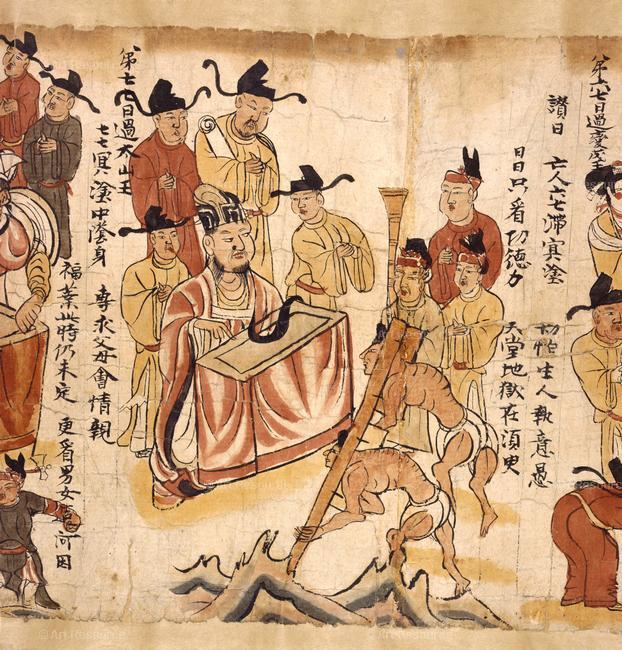 第六七日過變成王
讚曰 亡人六七滯冥塗 切怕生人執意愚
日日只看功德力 天堂地獄在須臾
第七七日過太山王
七七冥塗中陰身 專求父母會情親
福業此時仍未定 更看男女造何因
© Art Resource
© Art Resource